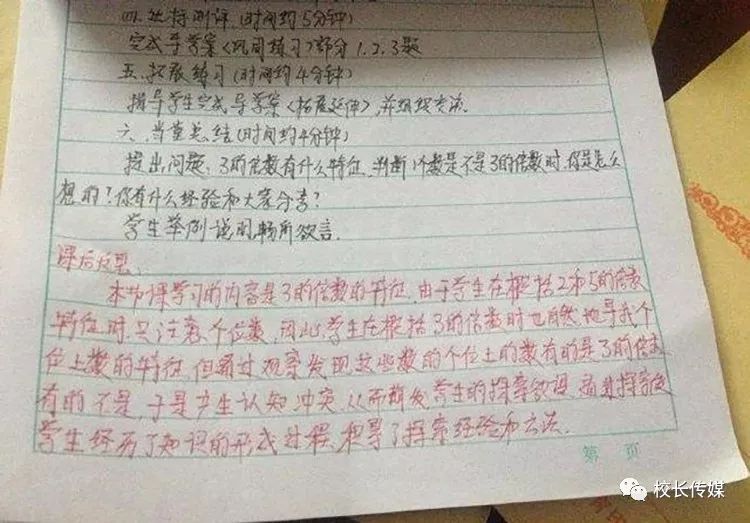 四.达标测评(时间约5分钟)
完成导学案〈巩固练习〉部分1.2.3题
五.拓展练习(时间约4分钟)
指导学生完成导学案〈拓展延伸〉,并组织交流.
六.当堂总结(时间约4分钟)
提出问题:3的倍数有什么特征,判断1个数是不是3的倍数时,你是怎么
想的?你有什么经验和大家分享?
学生举例说明,畅所欲言.
课后反思:
本节课学习的内容是3的倍数的特征.由于学生在概括2和5的倍数
特征时只注意个位数,因此学生在概括3的倍数时也自然地寻找个
位上数的特征,但通过观察发现这些数的个位上的数有的是3的倍数
有的不是,于是产生认知冲突,从而激发学生的探究欲望,通过探究使
学生经历了知识的形成过程,积累了探索经验和方法.
第 页
校长传媒